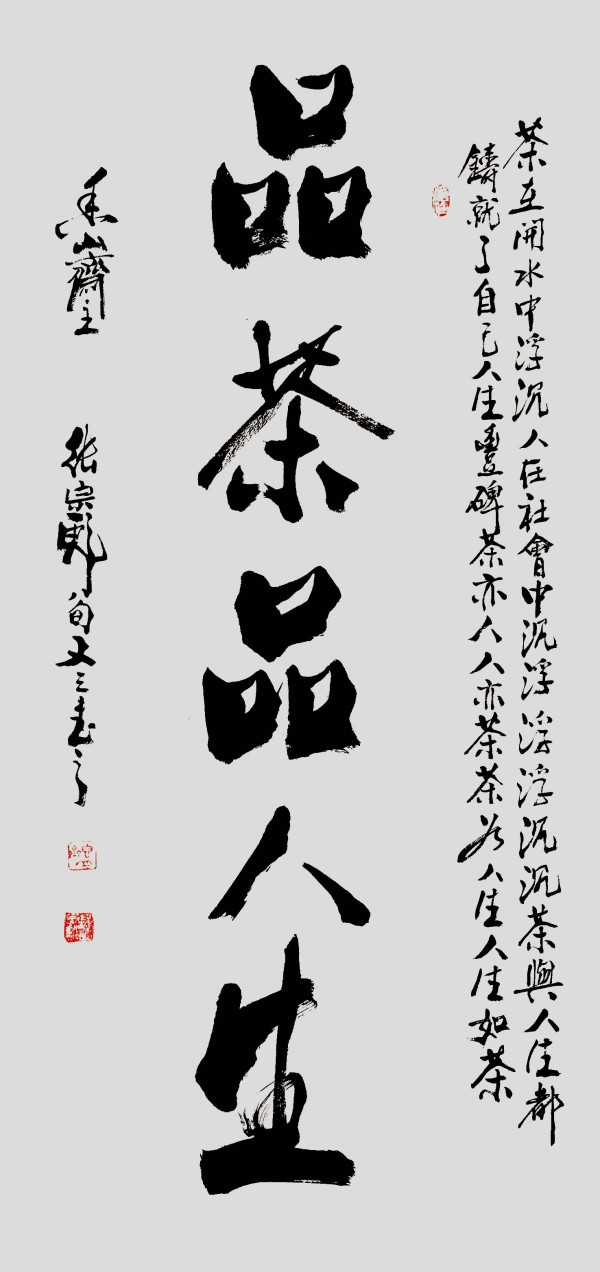 茶在開水中浮沉人在社會中沉浮浮浮沉沉茶與人生都
鑄就了自己人生豐碑茶亦人人亦茶茶人生人生如茶
品茶品人生
山齋主
张宗旬又三書之